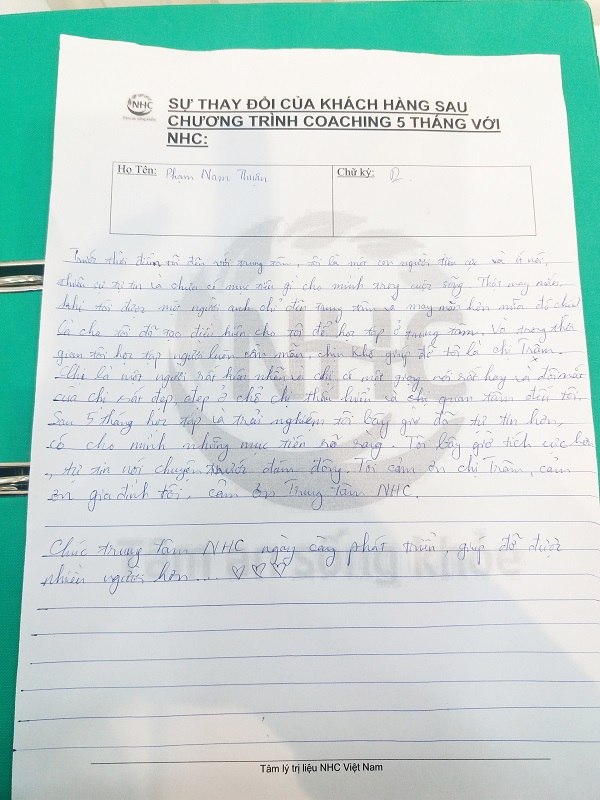 NHC
Tâm an sống khỏe
SỰ THAY ĐỔI CỦA KHÁCH HÀNG SAU
CHƯƠNG TRÌNH COACHING 5 THÁNG VỚI
NHC:
Họ Tên: Phạm Nam Thuận
Chữ ký:
Trước thời điểm tôi đến với trung tâm, tôi là một con người tiêu cực và ít nói,
thiếu sự tự tin và chưa có mục tiêu gì cho mình trong cuộc sống. Thật may mắn,
khi tôi được một người anh chỉ đến trung tâm và may mắn hơn nữa đó chính
là cha tôi đã tạo điều kiện cho tôi để học tập ở trung tâm. Và trong thời
gian tôi học tập người luôn cần mẫn, chịu khó giúp đỡ tôi là chị Trâm.
Chị là một người rất hồn nhiên và chị có một giọng nói rất hay và đôi mắt
của chị rất đẹp, đẹp ở chỗ chị thấu hiểu và chị quan tâm đến tôi.
Sau 5 tháng học tập và trải nghiệm tôi bây giờ đã tự tin hơn,
có cho mình những mục tiêu rõ ràng. Tôi bây giờ tích cực hơn
, tự tin nói chuyện trước đám đông. Tôi cảm ơn chị Trâm, cảm
ơn gia đình tôi, cảm ơn Trung Tâm NHC.
Chúc trung tâm NHC ngày càng phát triển, giúp đỡ được
nhiều người hơn.... ♡♡♡
Tâm an sống khỏe
Tâm lý trị liệu NHC Việt Nam